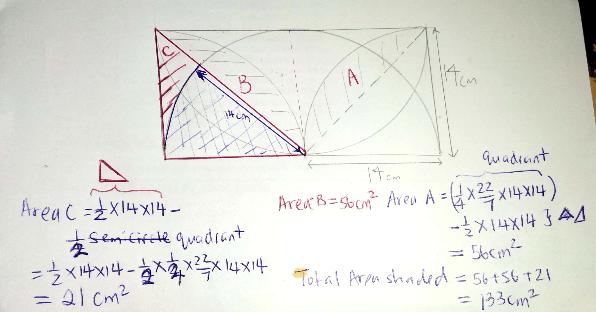 C
B
A
14cm
14cm
14cm
quadrant
Area C = 1/2 × 14 × 14 -
1/2 Semi Circle quadrant
= 1/2 × 14 × 14 - 1/2 × 1/4 × 22/7 × 14 × 14
= 21 cm²
Area B = 56cm²
Area A = (1/4 × 22/7 × 14 × 14)
- 1/2 × 14 × 14 }
= 56cm²
Total Area shaded = 56 + 56 + 21
= 133cm²